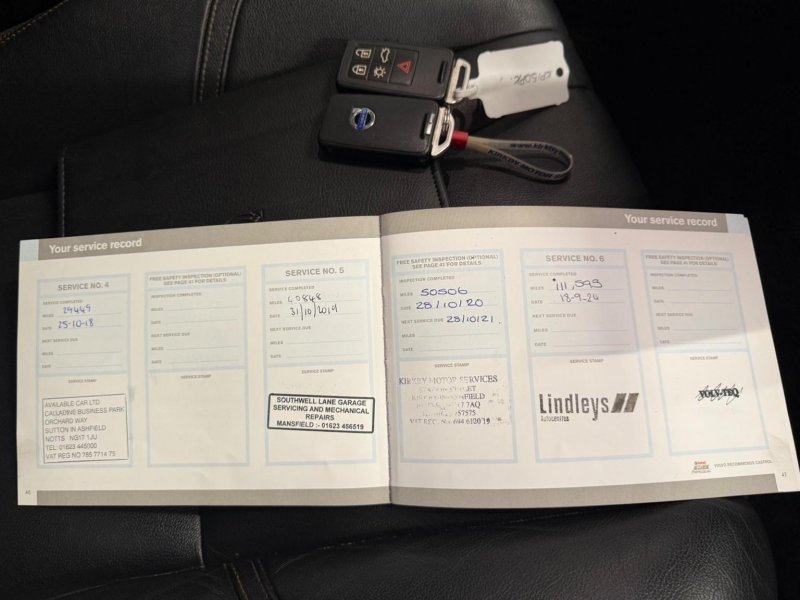 KIRKBY MOTOR
Your service record
SERVICE NO. 4
SERVICE COMPLETED
MILES 29449
DATE 25-10-18
NEXT SERVICE DUE
MILES
DATE
SERVICE STAMP
AVAILABLE CAR LTD
CALLADINE BUSINESS PARK
ORCHARD WAY
SUTTON IN ASHFIELD
NOTTS NG17 1JU
TEL: 01623 445000
VAT REG NO 785 7714 75
FREE SAFETY INSPECTION (OPTIONAL)
SEE PAGE 41 FOR DETAILS
INSPECTION COMPLETED
MILES
DATE
NEXT SERVICE DUE
MILES
DATE
SERVICE STAMP
SERVICE NO. 5
SERVICE COMPLETED
MILES 40848
DATE 31/10/2019
NEXT SERVICE DUE
MILES
DATE
SERVICE STAMP
SOUTHWELL LANE GARAGE
SERVICING AND MECHANICAL
REPAIRS
MANSFIELD :- 01623 456519
40
Your service record
FREE SAFETY INSPECTION (OPTIONAL)
SEE PAGE 41 FOR DETAILS
INSPECTION COMPLETED
MILES 50506
DATE 28/10/20
NEXT SERVICE DUE 28/10/21.
MILES
DATE
SERVICE STAMP
KIRKBY MOTOR SERVICES
7AQ
VAT REG. No. 694 6120 19
SERVICE NO. 6
SERVICE COMPLETED
MILES 111,595
DATE 18-9-24
NEXT SERVICE DUE
MILES
DATE
SERVICE STAMP
Lindleys
Autocentres
FREE SAFETY INSPECTION (OPTIONAL)
SEE PAGE 41 FOR DETAILS
INSPECTION COMPLETED
MILES
DATE
NEXT SERVICE DUE
MILES
DATE
SERVICE STAMP
VOLV-TEQ
Castrol
VOLVO RECOMMENDS CASTROL
41